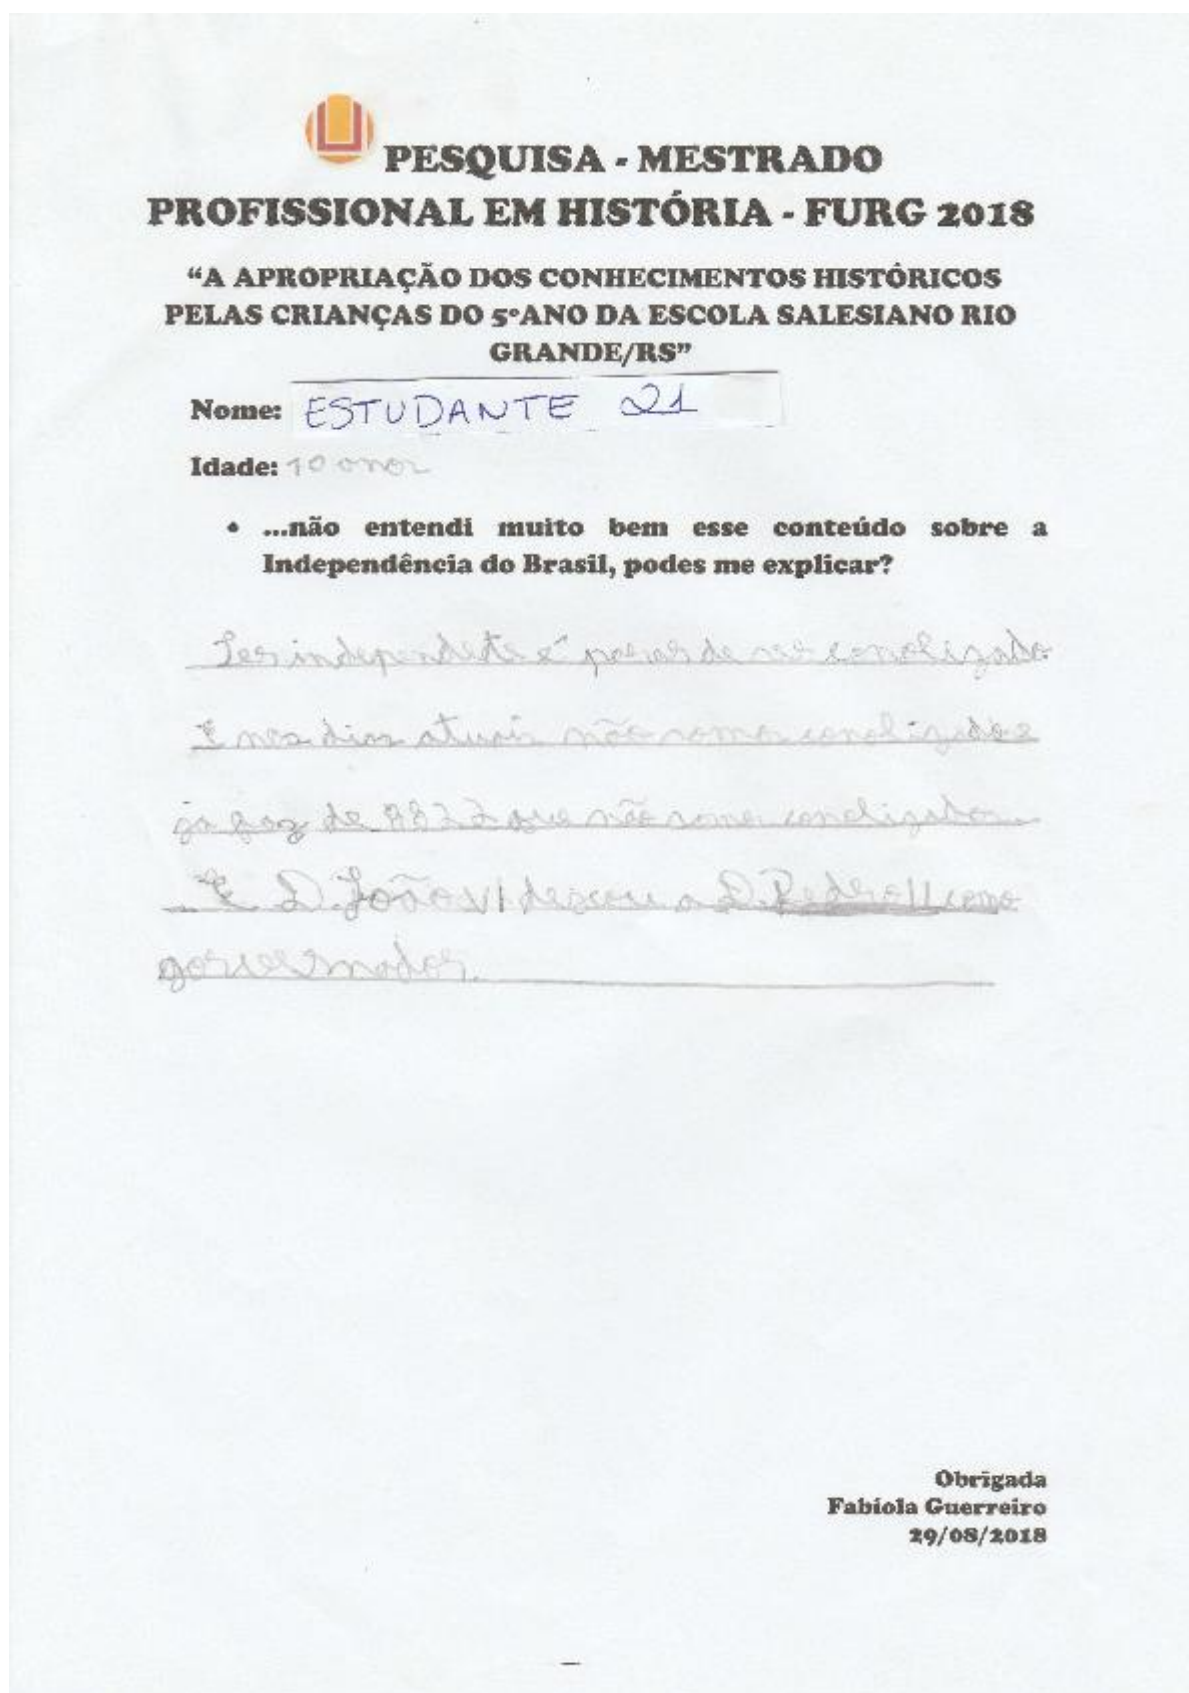 PESQUISA - MESTRADO
PROFISSIONAL EM HISTÓRIA - FURG 2018
“A APROPRIAÇÃO DOS CONHECIMENTOS HISTÓRICOS
PELAS CRIANÇAS DO 5ºANO DA ESCOLA SALESIANO RIO
GRANDE/RS”
Nome: ESTUDANTE 21
Idade: 10 anos
• ...não entendi muito bem esse conteúdo sobre a
Independência do Brasil, podes me explicar?
Ser independete é parar de ser conolizado.
E nos dias atuais não somos conolizados e
ja faz de que não somos conolizados
E D. João VI a D. Pedro II como
governador.
Obrigada
Fabíola Guerreiro
29/08/2018